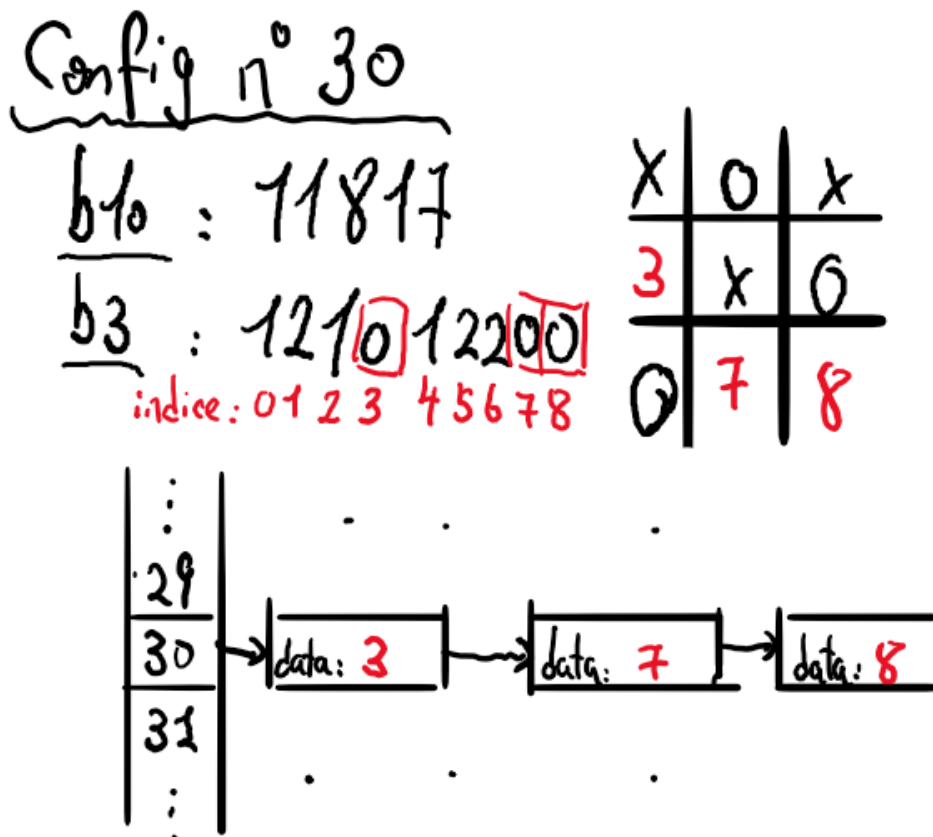 Config n° 30
b10 : 11817
b3 : 121012200
indice: 0 1 2 3 4 5 6 7 8
X O X
3 X O
O 7 8
29
30 data: 3 data: 7 data: 8
31